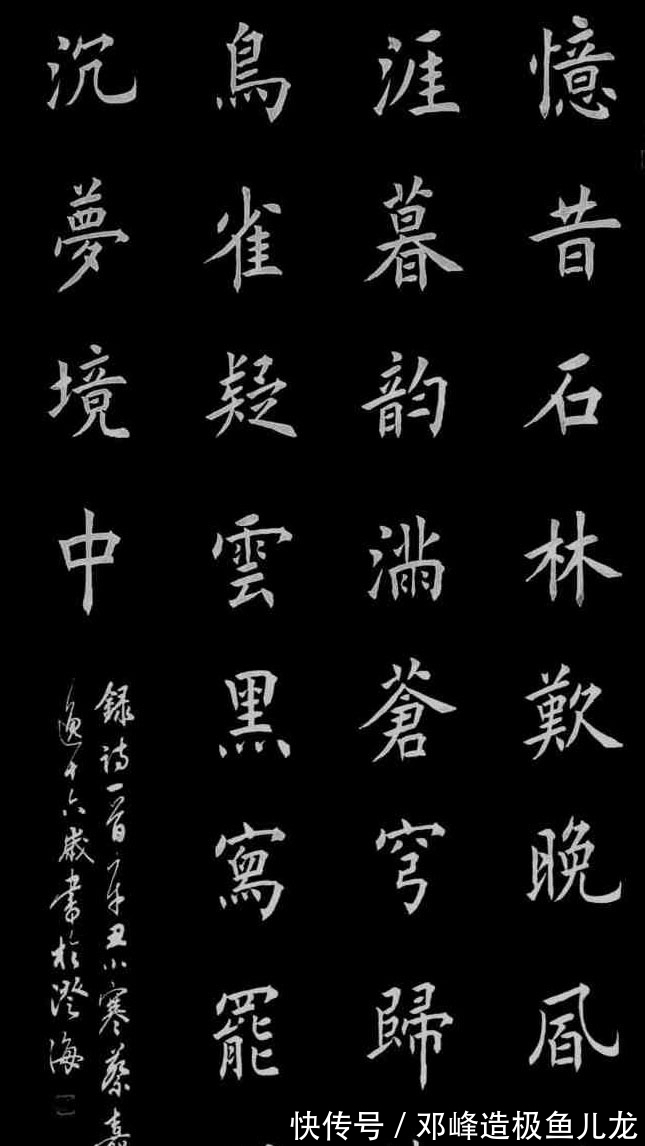 憶昔石林歎晚風
涯暮韵滿蒼穹歸
鳥雀疑雲黑寫罷
沉夢境中
錄詩一首辛丑小寒蔡
十六歲書於澄海
快传号 / 邓峰造极鱼儿龙